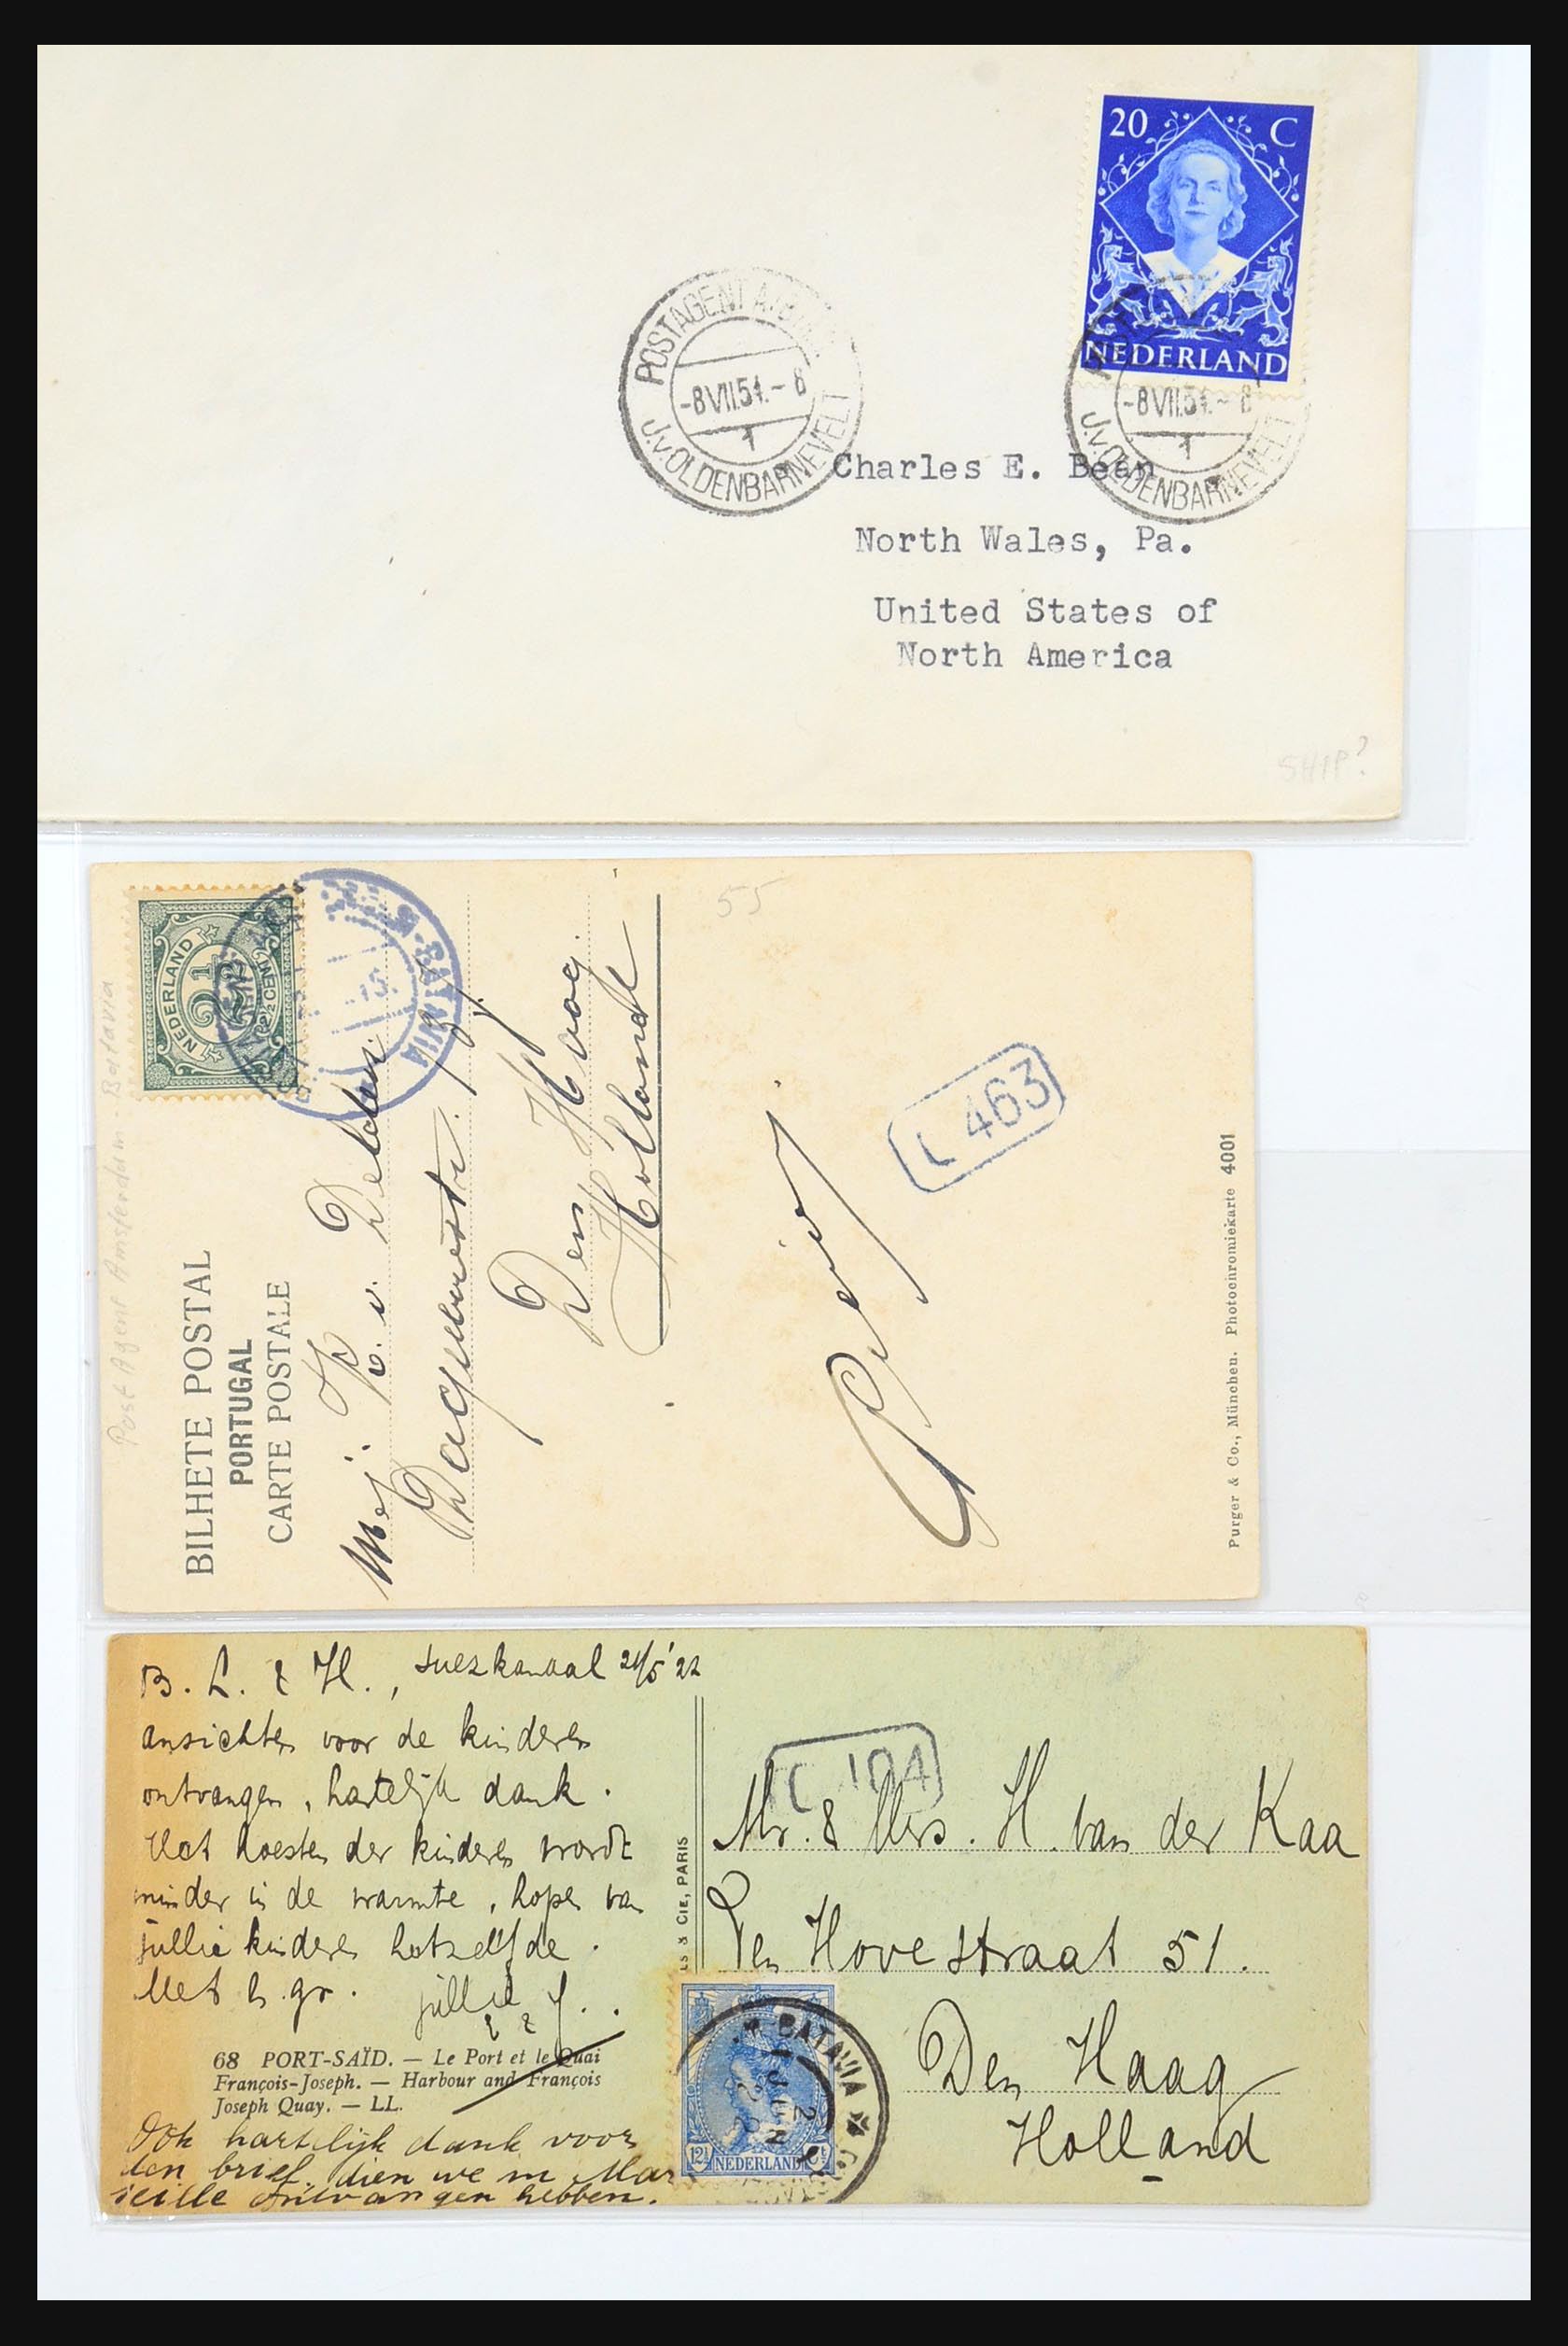 20 C
NEDERLAND
POSTAGENT
-8 VII.51.- 8
1
J.v.OLDENBARNEVELT
POST
-8 VII.51.- 8
1
J.v.OLDENBARNEVELT
Charles E. Bean
North Wales, Pa.
United States of
North America
SHIP?
Post Agent Amsterdam - Batavia
NEDERLAND
2½
2½ CENT
BILHETE POSTAL
PORTUGAL
CARTE POSTALE
Mej. v. Delden
Den Haag
Holland
55
L 463
Purger & Co., München. Photochromiekarte 4001
B. L. & H., Suezkanaal 21/5 '22
ansichten voor de kinderen
ontvangen, hartelijk dank.
Het hoesten der kinderen wordt
minder in de warmte, hopen van
jullie kinderen hetzelfde.
Met h. gr. jullie
68 PORT-SAÏD. — Le Port et le Quai
François-Joseph. — Harbour and François
Joseph Quay. — LL.
Ook hartelijk dank voor
den brief, dien we in Mar
seille ontvangen hebben.
& CIE, PARIS
L 104
Mr. & Mrs. H. van der Kaa
Ten Hovestraat 51.
Den Haag
Holland
12½
NEDERLAND
BATAVIA
JUN